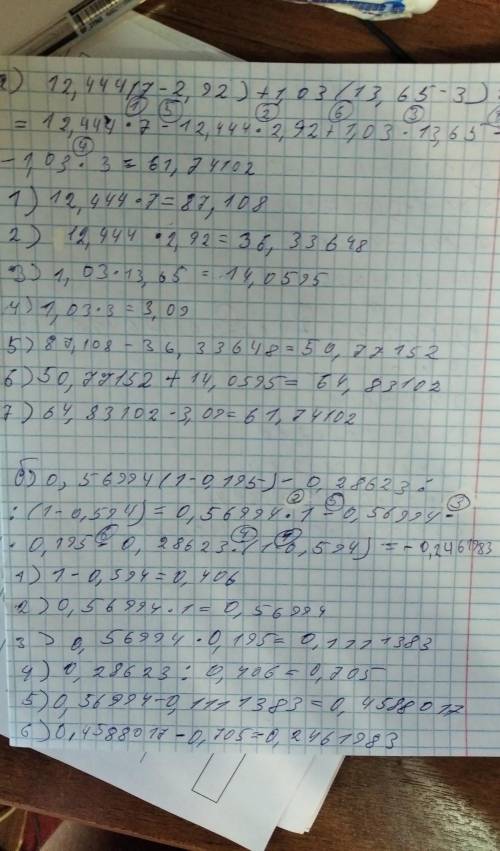 а) 12,444(7-2,92)+1,03(13,65-3)=
① ⑤ ② ⑥ ③
= 12,444·7-12,444·2,92+1,03·13,65-
④
-1,03·3=61,74102
1) 12,444·7=87,108
2) 12,444·2,92=36,33648
3) 1,03·13,65=14,0595
4) 1,03·3=3,09
5) 87,108-36,33648=50,77152
6) 50,77152+14,0595=64,83102
7) 64,83102-3,09=61,74102
б) 0,56994(1-0,195)-0,28623:
② ⑤ ③
:(1-0,594)=0,56994·1-0,56994·
⑥ ④
·0,195-0,28623:(1-0,594)=-0,2461983
1) 1-0,594=0,406
2) 0,56994·1=0,56994
3) 0,56994·0,195=0,1111383
4) 0,28623:0,406=0,705
5) 0,56994-0,1111383=0,4588017
6) 0,4588017-0,705=0,2461983